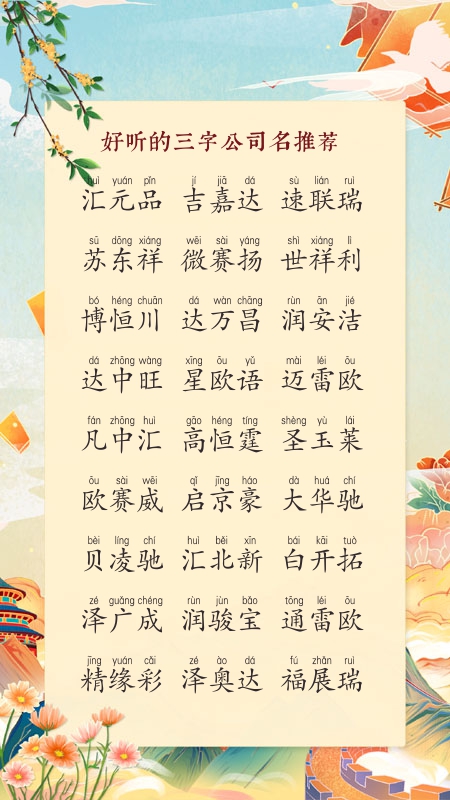 好听的三字公司名推荐
huì yuán pǐn jí jiā dá sù lián ruì
汇元品 吉嘉达 速联瑞
sū dōng xiáng wēi sài yáng shì xiáng lì
苏东祥 微赛扬 世祥利
bó héng chuān dá wàn chāng rùn ān jié
博恒川 达万昌 润安洁
dá zhōng wàng xīng ōu yǔ mài léi ōu
达中旺 星欧语 迈雷欧
fán zhōng huì gāo héng tíng shèng yù lái
凡中汇 高恒霆 圣玉莱
ōu sài wēi qǐ jīng háo dà huá chí
欧赛威 启京豪 大华驰
bèi líng chí huì běi xīn bái kāi tuò
贝凌驰 汇北新 白开拓
zé guǎng chéng rùn jùn bǎo tōng léi ōu
泽广成 润骏宝 通雷欧
jīng yuán cǎi zé ào dá fú zhǎn ruì
精缘彩 泽奥达 福展瑞